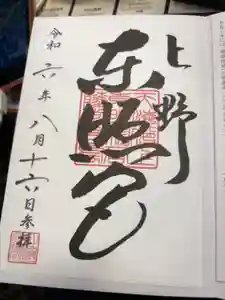 上野
東照宮
令和六年八月十六日参拝